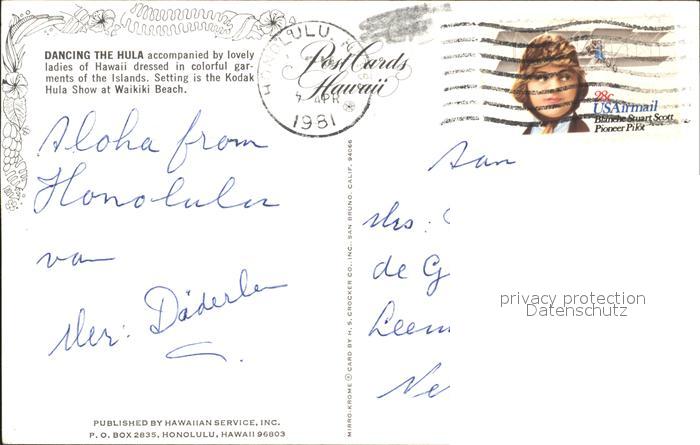 DANCING THE HULA accompanied by lovely
ladies of Hawaii dressed in colorful gar-
ments of the Islands. Setting is the Kodak
Hula Show at Waikiki Beach.
HONOLULU
APR
1981
Post Cards
Hawaii
28c
USAirmail
Blanche Stuart Scott
Pioneer Pilot
Aloha from
Honolulu
van
Mer: Däderlen
Aan
Mrs:
de G
Leem
Ne
privacy protection
Datenschutz
MIRRO-KROME ® CARD BY H. S. CROCKER CO., INC., SAN BRUNO, CALIF. 94066
PUBLISHED BY HAWAIIAN SERVICE, INC.
P. O. BOX 2835, HONOLULU, HAWAII 96803